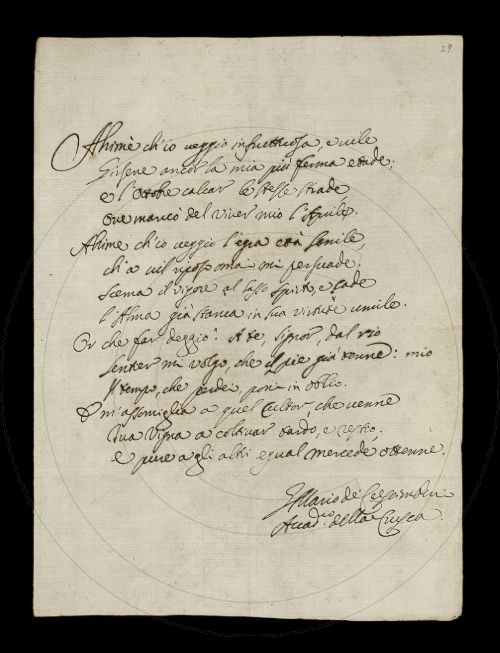 29
Ahimè ch'io veggio infruttuosa, e vile
Girsene ancor la mia più ferma etade;
e l'Ottobre calcar le stesse strade
Ove mancò del viver mio l'Aprile.
Ahimè ch'io veggio l'egra età senile,
ch'a vil riposo omai mi persuade:
scema il vigore al lasso spirto, e cade
l'Alma già stanca in sua virtute umile.
Or che far deggio? A te, Signor, dal rio
sentier mi volgo, che il piè già tenne: mio
Il tempo, che perdei, poni in oblio.
E m'assomiglia a quel Cultor che venne
Tua Vigna a coltivar tardo, e restio,
e pure a gli altri egual mercede ottenne.
Mario de
Accad.co della Crusca.